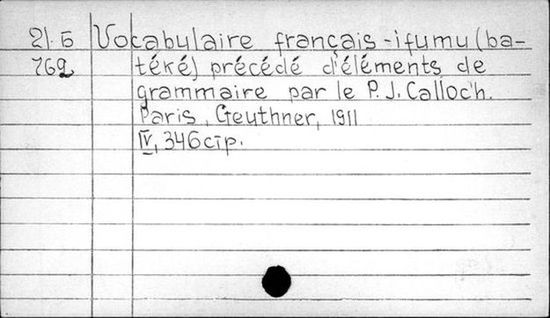 21.5 Vocabulaire français-ifumu (ba-
762 téké) précédé d'éléments de
grammaire par le P. J. Calloc'h.
Paris, Geuthner, 1911
IV, 346 стр.